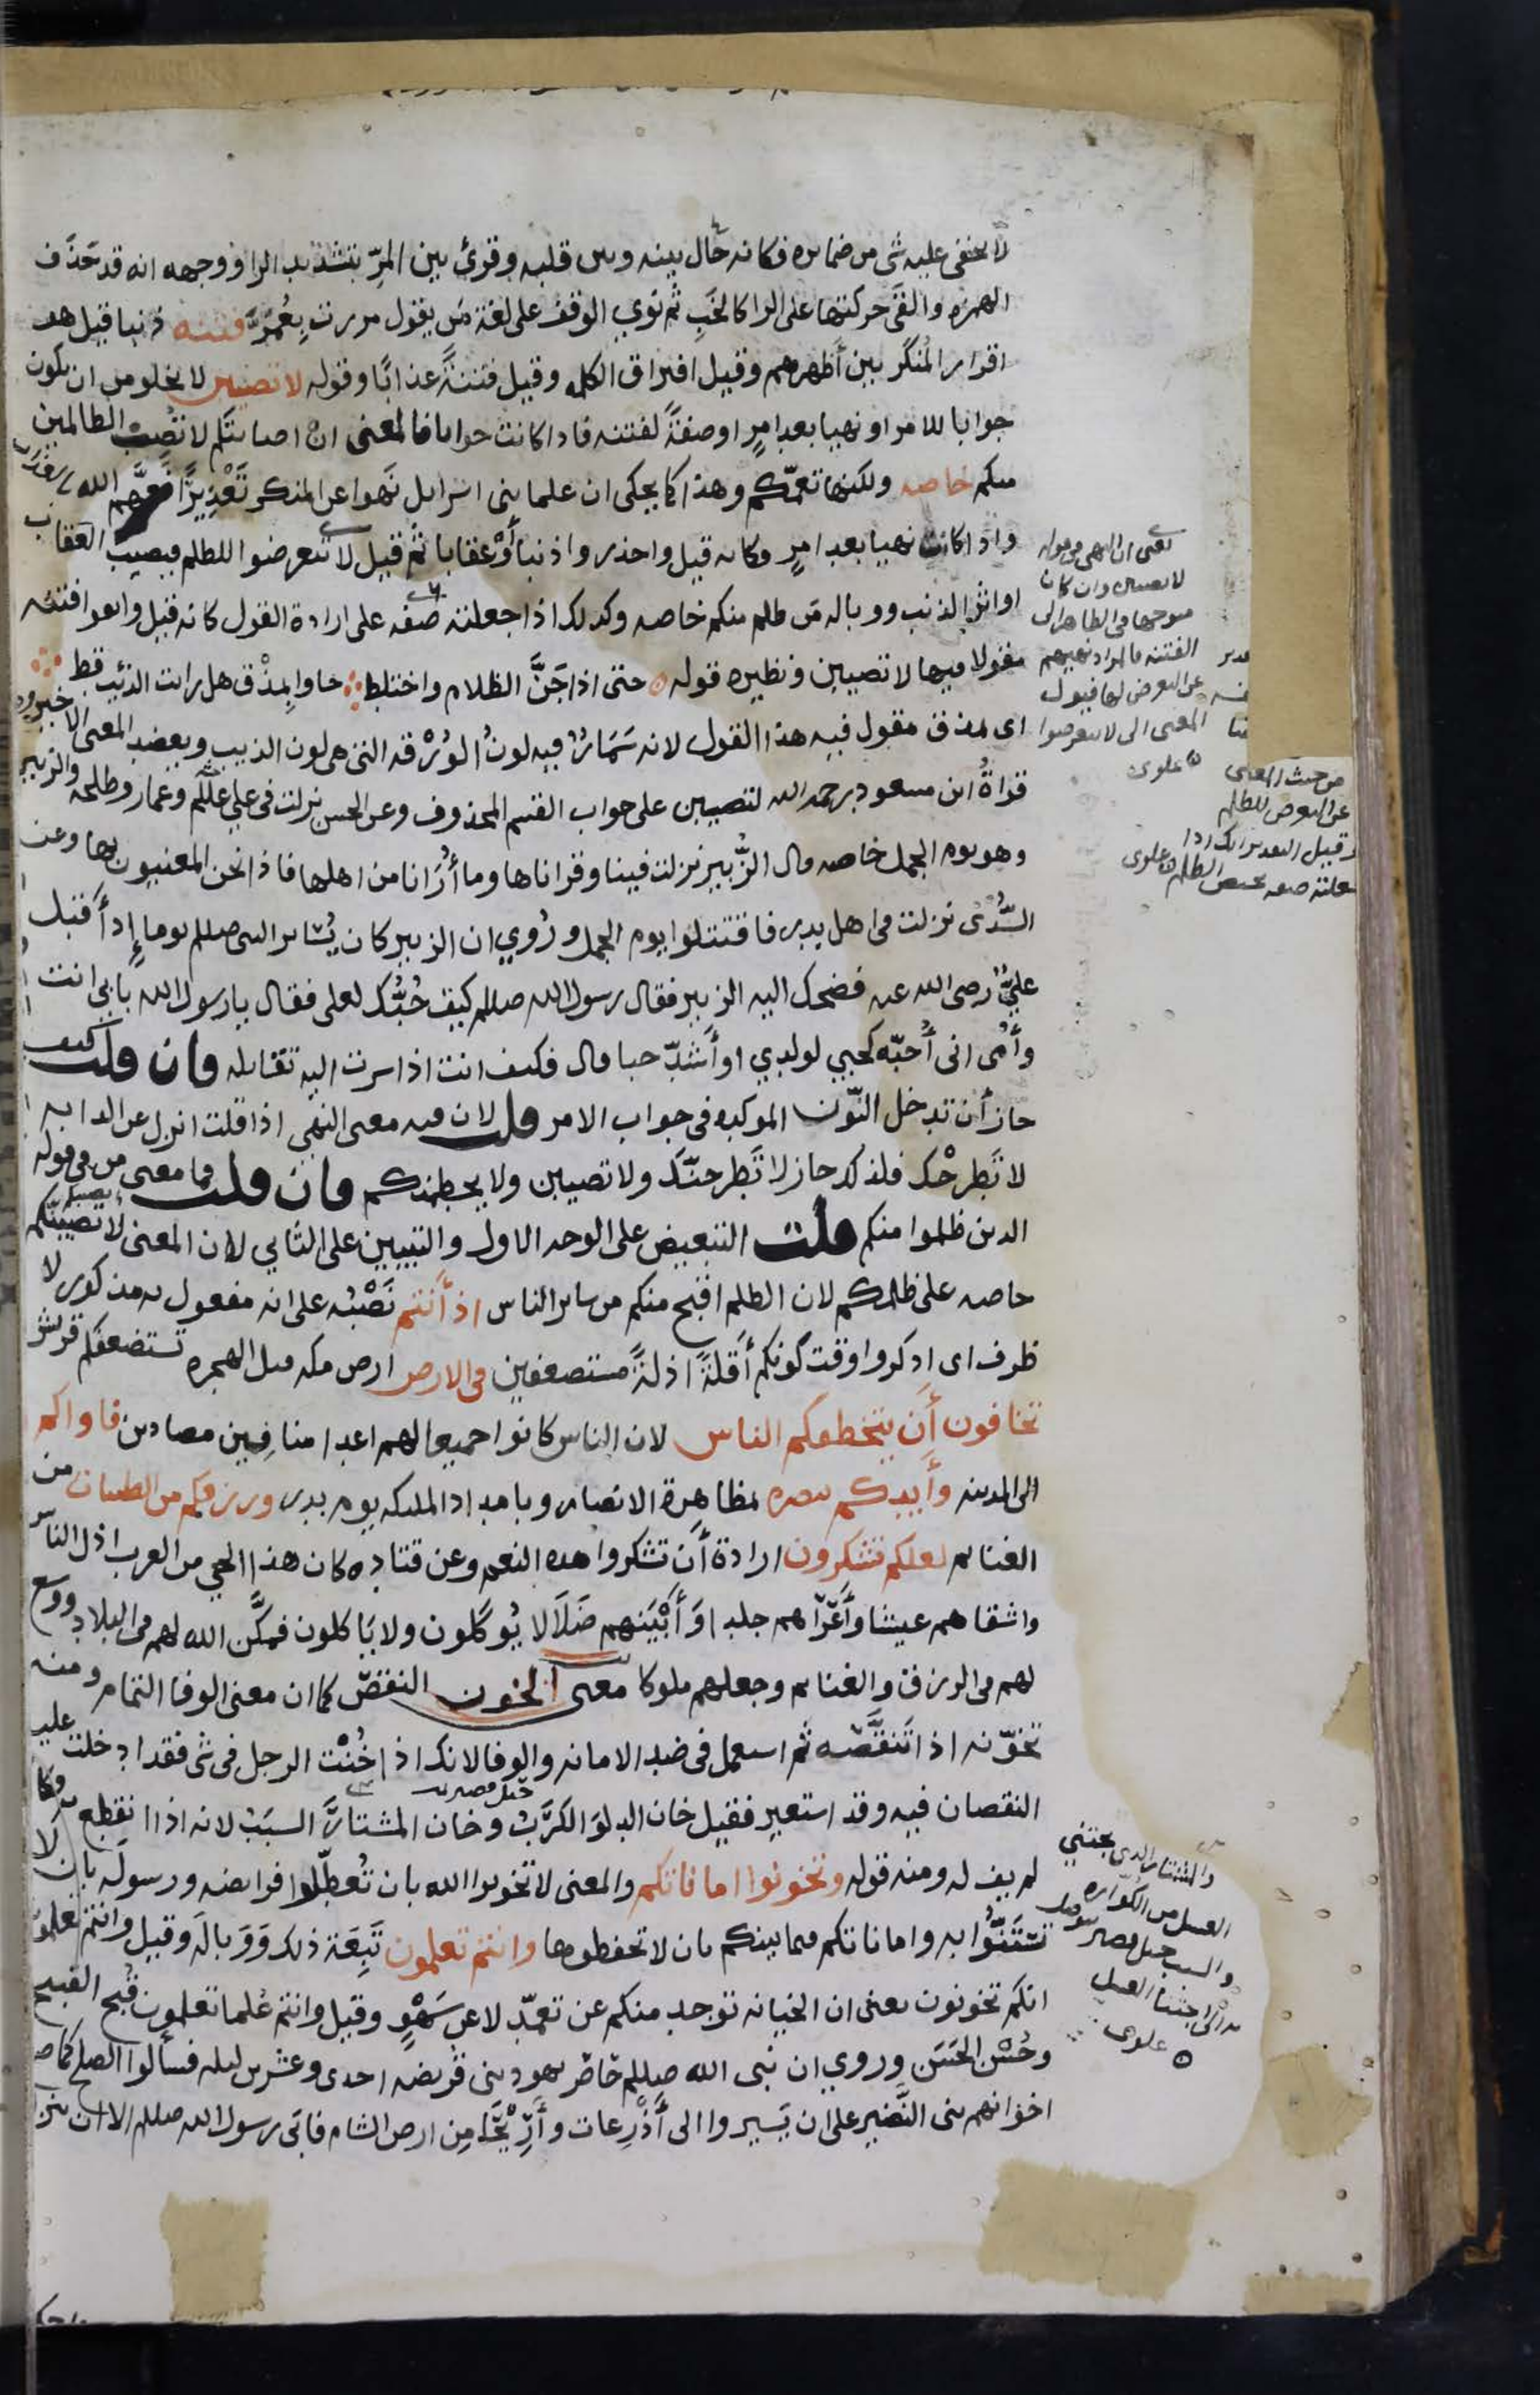 لا يخفى عليه شى من ضمايره فكانه حال بينه وبين قلبه وقرئ بين المرّ بتشديد الرا ووجهه انه قد حَذَف
الهمزه والقَى حركتها على الرا كالخَبِ ثم نوي الوقف على لغة مَن يقول مررت بِعُمَرّ فتنه ذنبا قيل هو
اقرار المُنكَر بين أظهرهم وقيل افتراق الكلمه وقيل فتنةً عذابًا وقوله لا تصيبن لا يخلو من ان يكون
جوابا للامر او نهيا بعد امرٍ او صفةً لفتنه فاذا كانت جوابا فالمعنى ان اصابتكم لا تصِب الظالمين
منكم خاصه ولكنها تعمّكم وهذا كما يحكى ان علما بنى اسرايل نَهَوا عن المنكر تَعْذِيرًا فعَمَّهم الله بالعذاب
واذا كانت نهيا بعد امرٍ فكانه قيل واحذروا ذنبا أَوْ عقابا ثم قيل لا تتعرضوا للظلم فيصيب العقاب
او اثر الذنب ووباله مَن ظلم منكم خاصه وكذلك اذا جعلته صفه على ارادة القول كانه قيل واتقوا فتنه
مقولا فيها لا تصيبن ونظيره قوله ه حتى اذا جَنَّ الظلام واختلط ∴ جاوا بِمذْق هل رايت الذئب قط ∴
اى مذق مقول فيه هذا القول لانه سَمَارٌ فيه لونُ الوُرْقه التى هى لون الذيب ويعضد المعنى الاخير
قراةُ ابن مسعود رحمه الله لتصيبن على جواب القسم المحذوف وعن الحسن نزلت فى علي علَلَم وعمار وطلحه والزبير
وهو يوم الجمل خاصه قال الزُّبير نزلت فينا وقراناها وما أُرَانا من اهلها فاذا نحن المعنيون بها وعن
السُّدى نزلت فى اهل بدر فاقتتلوا يوم الجمل ورُوي ان الزبير كان يُسَاير النبى صللم يوما إِذ أَقبل
عليٌّ رضى الله عنه فضحك اليه الزبير فقال رسول الله صللم كيف حُبُّك لعلى فقال يا رسول الله بابى انت
وأمى انى أحبّه كحبي لولدي او أَشدّ حبا قال فكيف انت اذا سرت اليه تقاتله فان قلت كيف
جاز أن تدخل النّون الموكده فى جواب الامر قلت لان فيه معنى النهي اذا قلت انزل عن الدابه
لا تَطرحْك فلذلك جاز لا تَطرحنّك ولا تصيبن ولا يحطمنكم فان قلت فما معنى من فى قوله
الدين ظلموا منكم قلت التبعيض على الوجه الاول والتبيين على الثاني لان المعنى لا تصيبنّكم
خاصه على ظلمكم لان الظلم اقبح منكم من ساير الناس اذ أَنتم نَصْبُه على انه مفعول به مذكور لا
ظرف اى اذكروا وقت كونكم أَقلةً اذلةً مستضعفين فى الارض ارض مكه قبل الهجره تستضعفكم قريش
تخافون أن يتخطفكم الناس لان الناس كانوا جميعا لهم اعدا منافِين مضادين فاواكم
الى المدينه وأَيدكم بنصره بمظاهرة الانصار وبامداد الملئكه يوم بدر ورزقكم من الطيبات من
الغنايم لعلكم تشكرون ارادة أن تشكروا هذه النعم وعن قتاده كان هذا الحي من العرب اذل الناس
واشقاهم عيشا وأَعْرَاهم جلدا وَأَبْيَنهم ضَلَالا يُوكَلون ولا يَاكلون فمكّن الله لهم فى البلاد ووسع
لهم فى الرزق والغنايم وجعلهم ملوكا معنى الخون النقصُ كما ان معنى الوفا التمام ومنه
تخوّنه اذا تَنقَّصَه ثم استعمل فى ضد الامانه والوفا لانك اذا خُنْت الرجل فى شى فقد ادخلت عليه
النقصان فيه وقد استعير فقيل خان الدلوَ الكَرَبُ وخان المشتارَ السبَبُ لانه اذا انقطع به فكا
لم يف له ومنه قوله وتخونوا اماناتكم والمعنى لا تخونوا الله بان تُعطّلوا فرايضه ورسولَه بان لا
تَسْتَنُّوا به واماناتكم فيما بينكم بان لا تحفظوها وانتم تعلمون تَبِعَة ذلك وَوَبالَه وقيل وانتم تعلمون
انكم تخونون يعنى ان الخيانه توجد منكم عن تعمّد لا عن سَهْوٍ وقيل وانتم عُلما تعلمون قُبح القبيح
وحُسْنَ الحَسَن وروي ان نبى الله صللم حَاصَر يهود بنى قريضه احدى وعشرين ليله فسألوا الصلح كما صالح
اخوانهم بنى النَّضير على ان يَسيروا الى أَذرِعات وأَرِيْحَا مِن ارض الشام فابَى رسول الله صللم الا ان ينزلوا
يعنى ان النهى فى قوله
لا تصيبن وان كان
متوجها فى الظاهر الى
الفتنه فالمراد نهيهم
عن التعرض لها فيول
المعنى الى لا تتعرضوا
ه علوى
من حيث المعنى
عن التعرض للظلم
وقيل التقدير انك اذا
جعلته صفه يختص الظلم ه علوى
والمشتار الذى يجتني
العسل من الكواره
والسبب حبل قصير يتوصل
به الى اجتنا العسل
ه علوى
حبل قصير